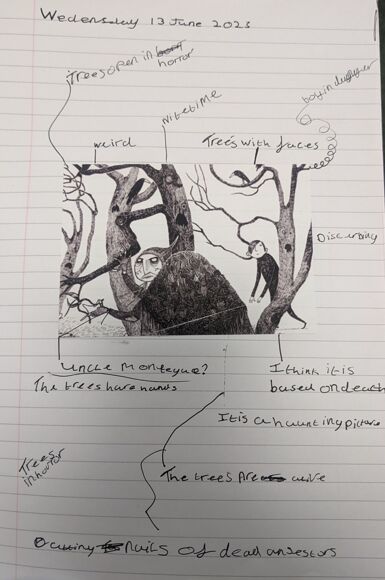 Wedensday 13 June 2023
Trees open in horror
boy in dugyger
nitetime
weird
Trees with faces
Discurbing
uncle monteyue?
The trees have hands
I think it is
based on death
It is a haunting picture
Trees
in horror
The trees Are alive
cutting nails of dead ancestors